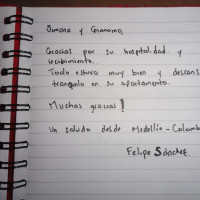 Simona y Giacomo,
Gracias por su hospitalidad y
recibimiento.
Todo estuvo muy bien y descans
tranquilo en su apartamento.
Muchas gracias!
Un saludo desde Medellín - Colomb
Felipe Sánchez.